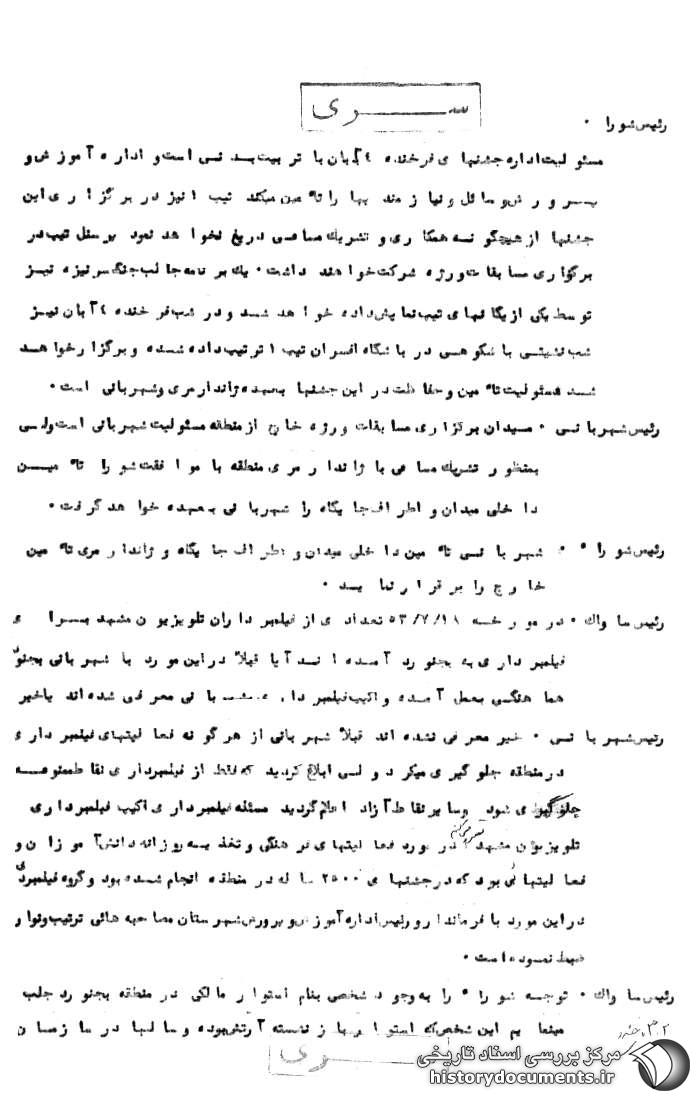 سـری
رئیس شورا .
مسئولیت اداره جشنهای فرخنده ٤ آبان با تربیت بدنسی است و اداره آموزش و
پرورش وسائل و نیازمندیها را تأمین میکند تیپ ۱ نیز در برگزاری این
جشنها از هیچگونه همکاری و تشریک مساعی دریغ نخواهد نمود پرسنل تیپ در
برگزاری مسابقات ورزه شرکت خواهند داشت . یک برنامه جالب جنگ سرنیزه نیز
توسط یکی از یگانهای تیپ نمایش داده خواهد شد و در شب فرخنده ٤ آبان نیز
شب نشینی با شکوهی در باشگاه افسران تیپ ۱ ترتیب داده شده و برگزار خواهد
شد مسئولیت تأمین و حفاظت در این جشنها بعهده ژاندارمری و شهربانی است .
رئیس شهربانی . میدان برگزاری مسابقات ورزه خارج از منطقه مسئولیت شهربانی است ولی
بمنظور تشریک مساعی با ژاندارمری منطقه با موافقت شورا تأمین
داخلی میدان و اطراف جایگاه را شهربانی بعهده خواهد گرفت .
رئیس شورا . شهربانی تأمین داخلی میدان و اطراف جایگاه و ژاندارمری تأمین
خارج را برقرار نماید .
رئیس ساواک . در مورخه ۵۳/۷/۱۸ تعدادی از فیلمبرداران تلویزیون مشهد برای
فیلمبرداری به بجنورد آمده اند آیا قبلاً در این مورد با شهربانی بجنورد
هماهنگی بعمل آمده و اکیپ فیلمبرداری بشهربانی معرفی شده اند یاخیر
رئیس شهربانی . خیر معرفی نشده اند قبلاً شهربانی از هرگونه فعالیتهای فیلمبرداری
در منطقه جلوگیری میکرد ولی ابلاغ گردید که فقط از فیلمبرداری نقاط ممنوعه
جلوگیری شود وسایر نقاط آزاد اعلام گردید مسئله فیلمبرداری اکیپ فیلمبرداری
تلویزیون مشهد در مورد فعالیتهای فرهنگی و تغذیه روزانه دانش آموزان و
فعالیتهائی بود که در جشنهای ۲۵۰۰ ساله در منطقه انجام شده بود و گروه فیلمبرداری
در این مورد با فرماندار و رئیس اداره آموزش و پرورش شهرستان مصاحبه هائی ترتیب و نوار
ضبط نموده است .
رئیس ساواک . توجه شورا را به وجود شخصی بنام استوار مالکی در منطقه بجنورد جلب
مینمایم این شخص که استوار بازنشسته آرتش بوده و سالها در سازمان
سـری
مرکز بررسی اسناد تاریخی
historydocuments.ir